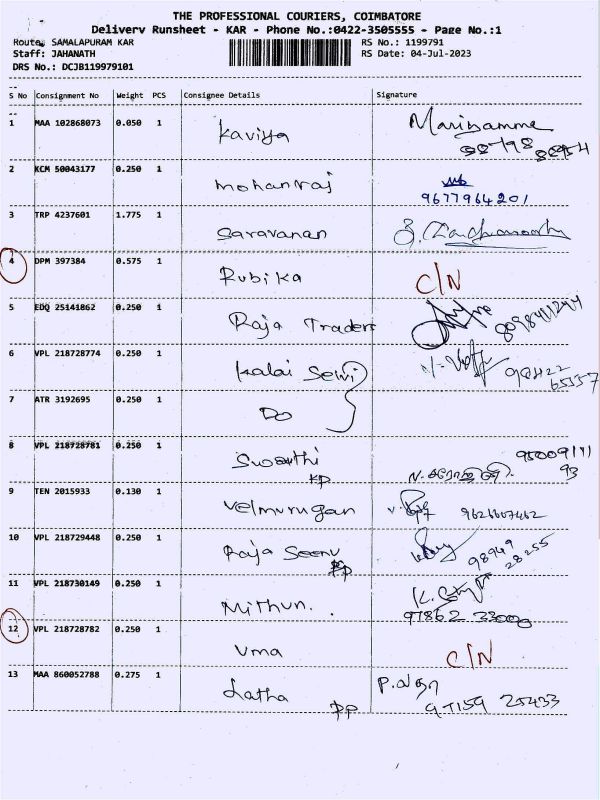 THE PROFESSIONAL COURIERS, COIMBATORE
Delivery Runsheet - KAR - Phone No.:0422-3505555 - Page No.:1
Route: SAMALAPURAM KAR RS No.: 1199791
Staff: JAHANATH RS Date: 04-Jul-2023
DRS No.: DCJB119979101
S No Consignment No Weight PCS Consignee Details Signature
1 MAA 102868073 0.050 1 Kaviya Mariyamma
2 KCM 50043177 0.250 1 Mohanraj
9677964201
3 TRP 4237601 1.775 1 Saravanan
4 DPM 397384 0.575 1 Rubika C/N
5 EDQ 25141862 0.250 1 Raja Traders
6 VPL 218728774 0.250 1 Kalai Selvi 98422
65557
7 ATR 3192695 0.250 1 Do
8 VPL 218728781 0.250 1 Swathi
9 TEN 2015933 0.130 1 Velmurugan 9626607462
10 VPL 218729448 0.250 1 Raja Seenu 98949
28255
11 VPL 218730149 0.250 1 Mithun.
97862 33000
12 VPL 218728782 0.250 1 Uma C/N
13 MAA 860052788 0.275 1 Latha PP P.லதா
97159 25433